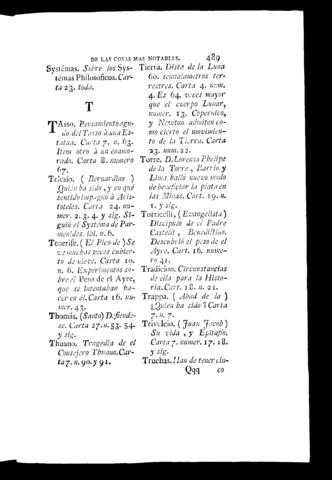 DE LAS COSAS MAS NOTABLES. 489
Systémas. Sobre los Sys-
témas Philosoficos. Car-
ta 23. toda.
T
TAsso. Pensamiento agu-
do del Tasso à una Es-
tatua. Carta 7. n. 63.
Item otro à un enamo-
rado. Carta 8. numero
67.
Telesio. (Bernardino)
Quién ha sido, y en qué
sentido impugnó à Aris-
toteles. Carta 24. nu-
mer. 2. 3. 4. y sig. Si-
guió el Systéma de Par-
menides. ibi. n. 6.
Tenerife. (El Pico de) Se
ve muchas veces cubier-
to de nieve. Carta 10.
n. 6. Experimentos so-
bre el Peso de el Ayre,
que se intentaban ha-
cer en él. Carta 16. nu-
mer. 43.
Thomás. (Santo) Defiende-
se. Carta 27. n. 53. 54.
y sig.
Thuano. Tragedia de el
Consejero Thuano. Car-
ta 7. n. 90. y 91.
Tierra. Dista de la Luna
60. semidiametros ter-
restres. Carta 4. num.
4. Es 64. veces mayor
que el cuerpo Lunar,
numer. 13. Copernico,
y Newton admiten co-
mo cierto el movimien-
to de la Tierra. Carta
23. num. 22.
Torre. D. Lorenzo Phelipe
de la Torre, Barrio y
Lima halló nuevo modo
de beneficiar la plata en
las Minas. Cart. 19. n.
1. y sig.
Torricelli, (Evangelista)
Discipulo de el Padre
Castelli, Benedictino.
Descubrió el peso de el
Ayre. Cart. 16. nume-
ro 41.
Tradicion. Circunstancias
de ella para la Histo-
ria. Cart. 18. n. 21.
Trappa. (Abad de la)
¿Quién ha sido? Carta
7. n. 7.
Trivulcio. (Juan Jacob)
Su vida, y Epitafio.
Carta 7. numer. 17. 18.
y sig.
Truchas. Han de tener cin-
Qqq co